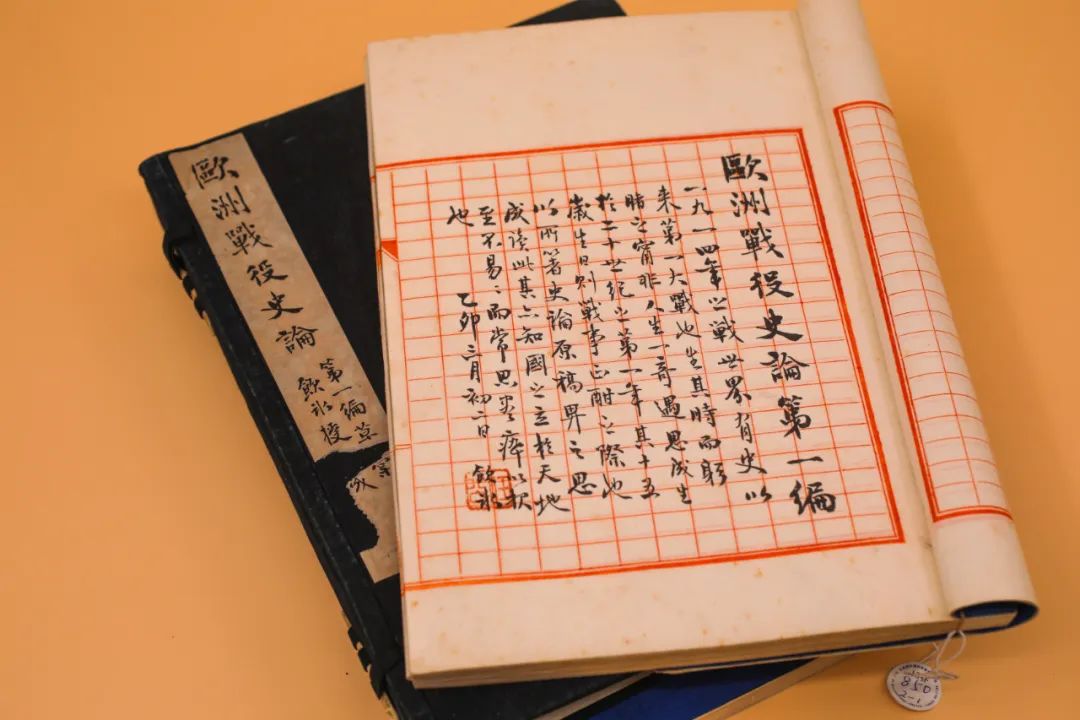 歐洲戰役史論
第一編
飲冰授
歐洲戰役史論第一編
一九一四年之戰世界有史以
来第一大戰也生其時而躬
睹之甯非人生一奇遇思成生
於二十世紀之第一年其十五
歲生日則戰事正酣之際也
以所著史論原稿畀之思
成讀此其亦知國之立於天地
至不易、而常思盡瘁以報
也
乙卯三月初二日 飲冰
850
2-1